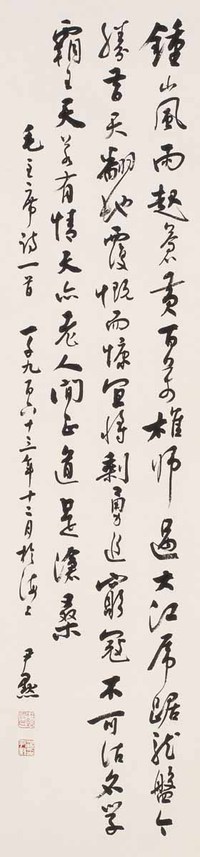 鍾山風雨起蒼黄百万雄師過大江虎踞龙盤今
勝昔天翻地覆慨而慷宜將剩勇追窮寇不可沽名学
霸王天若有情天亦老人间正道是滄桑
毛主席詩一首 一千九百六十三年十二月於海上 尹默